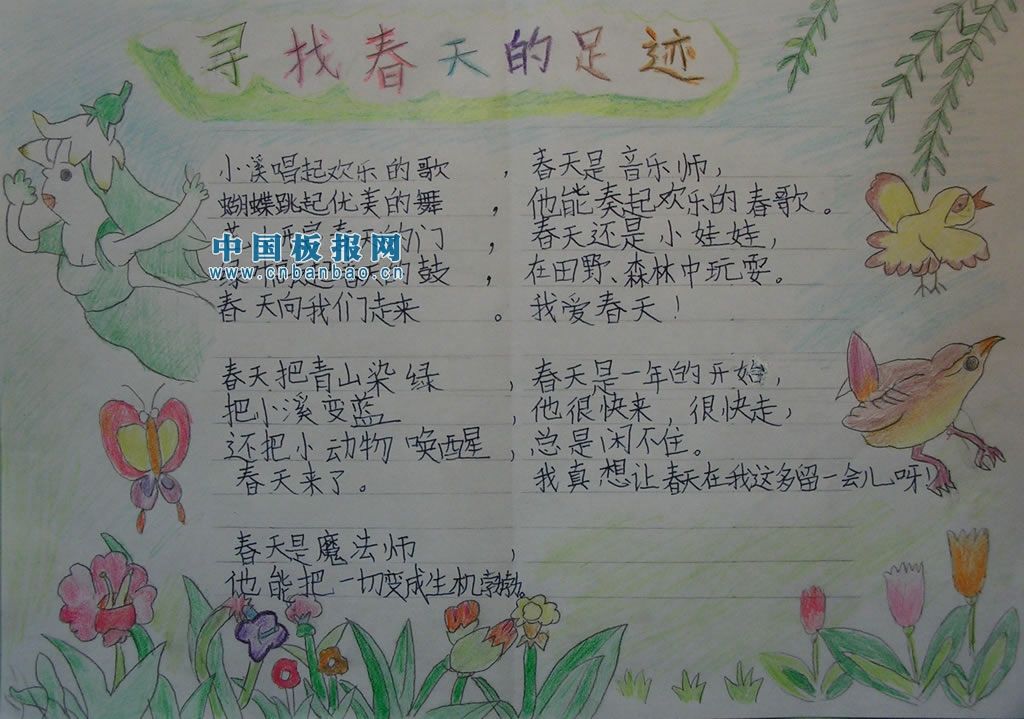 寻找春天的足迹
小溪唱起欢乐的歌，
蝴蝶跳起优美的舞，
春天的门，
春天的鼓，
春天向我们走来。
春天把青山染绿，
把小溪变蓝，
还把小动物唤醒，
春天来了。
春天是魔法师，
他能把一切变成生机勃勃。
春天是音乐师，
他能奏起欢乐的春歌。
春天还是小娃娃，
在田野、森林中玩耍。
我爱春天！
春天是一年的开始，
他很快来，很快走，
总是闲不住。
我真想让春天在我这多留一会儿呀！
中国板报网
www.cnbanbao.cn